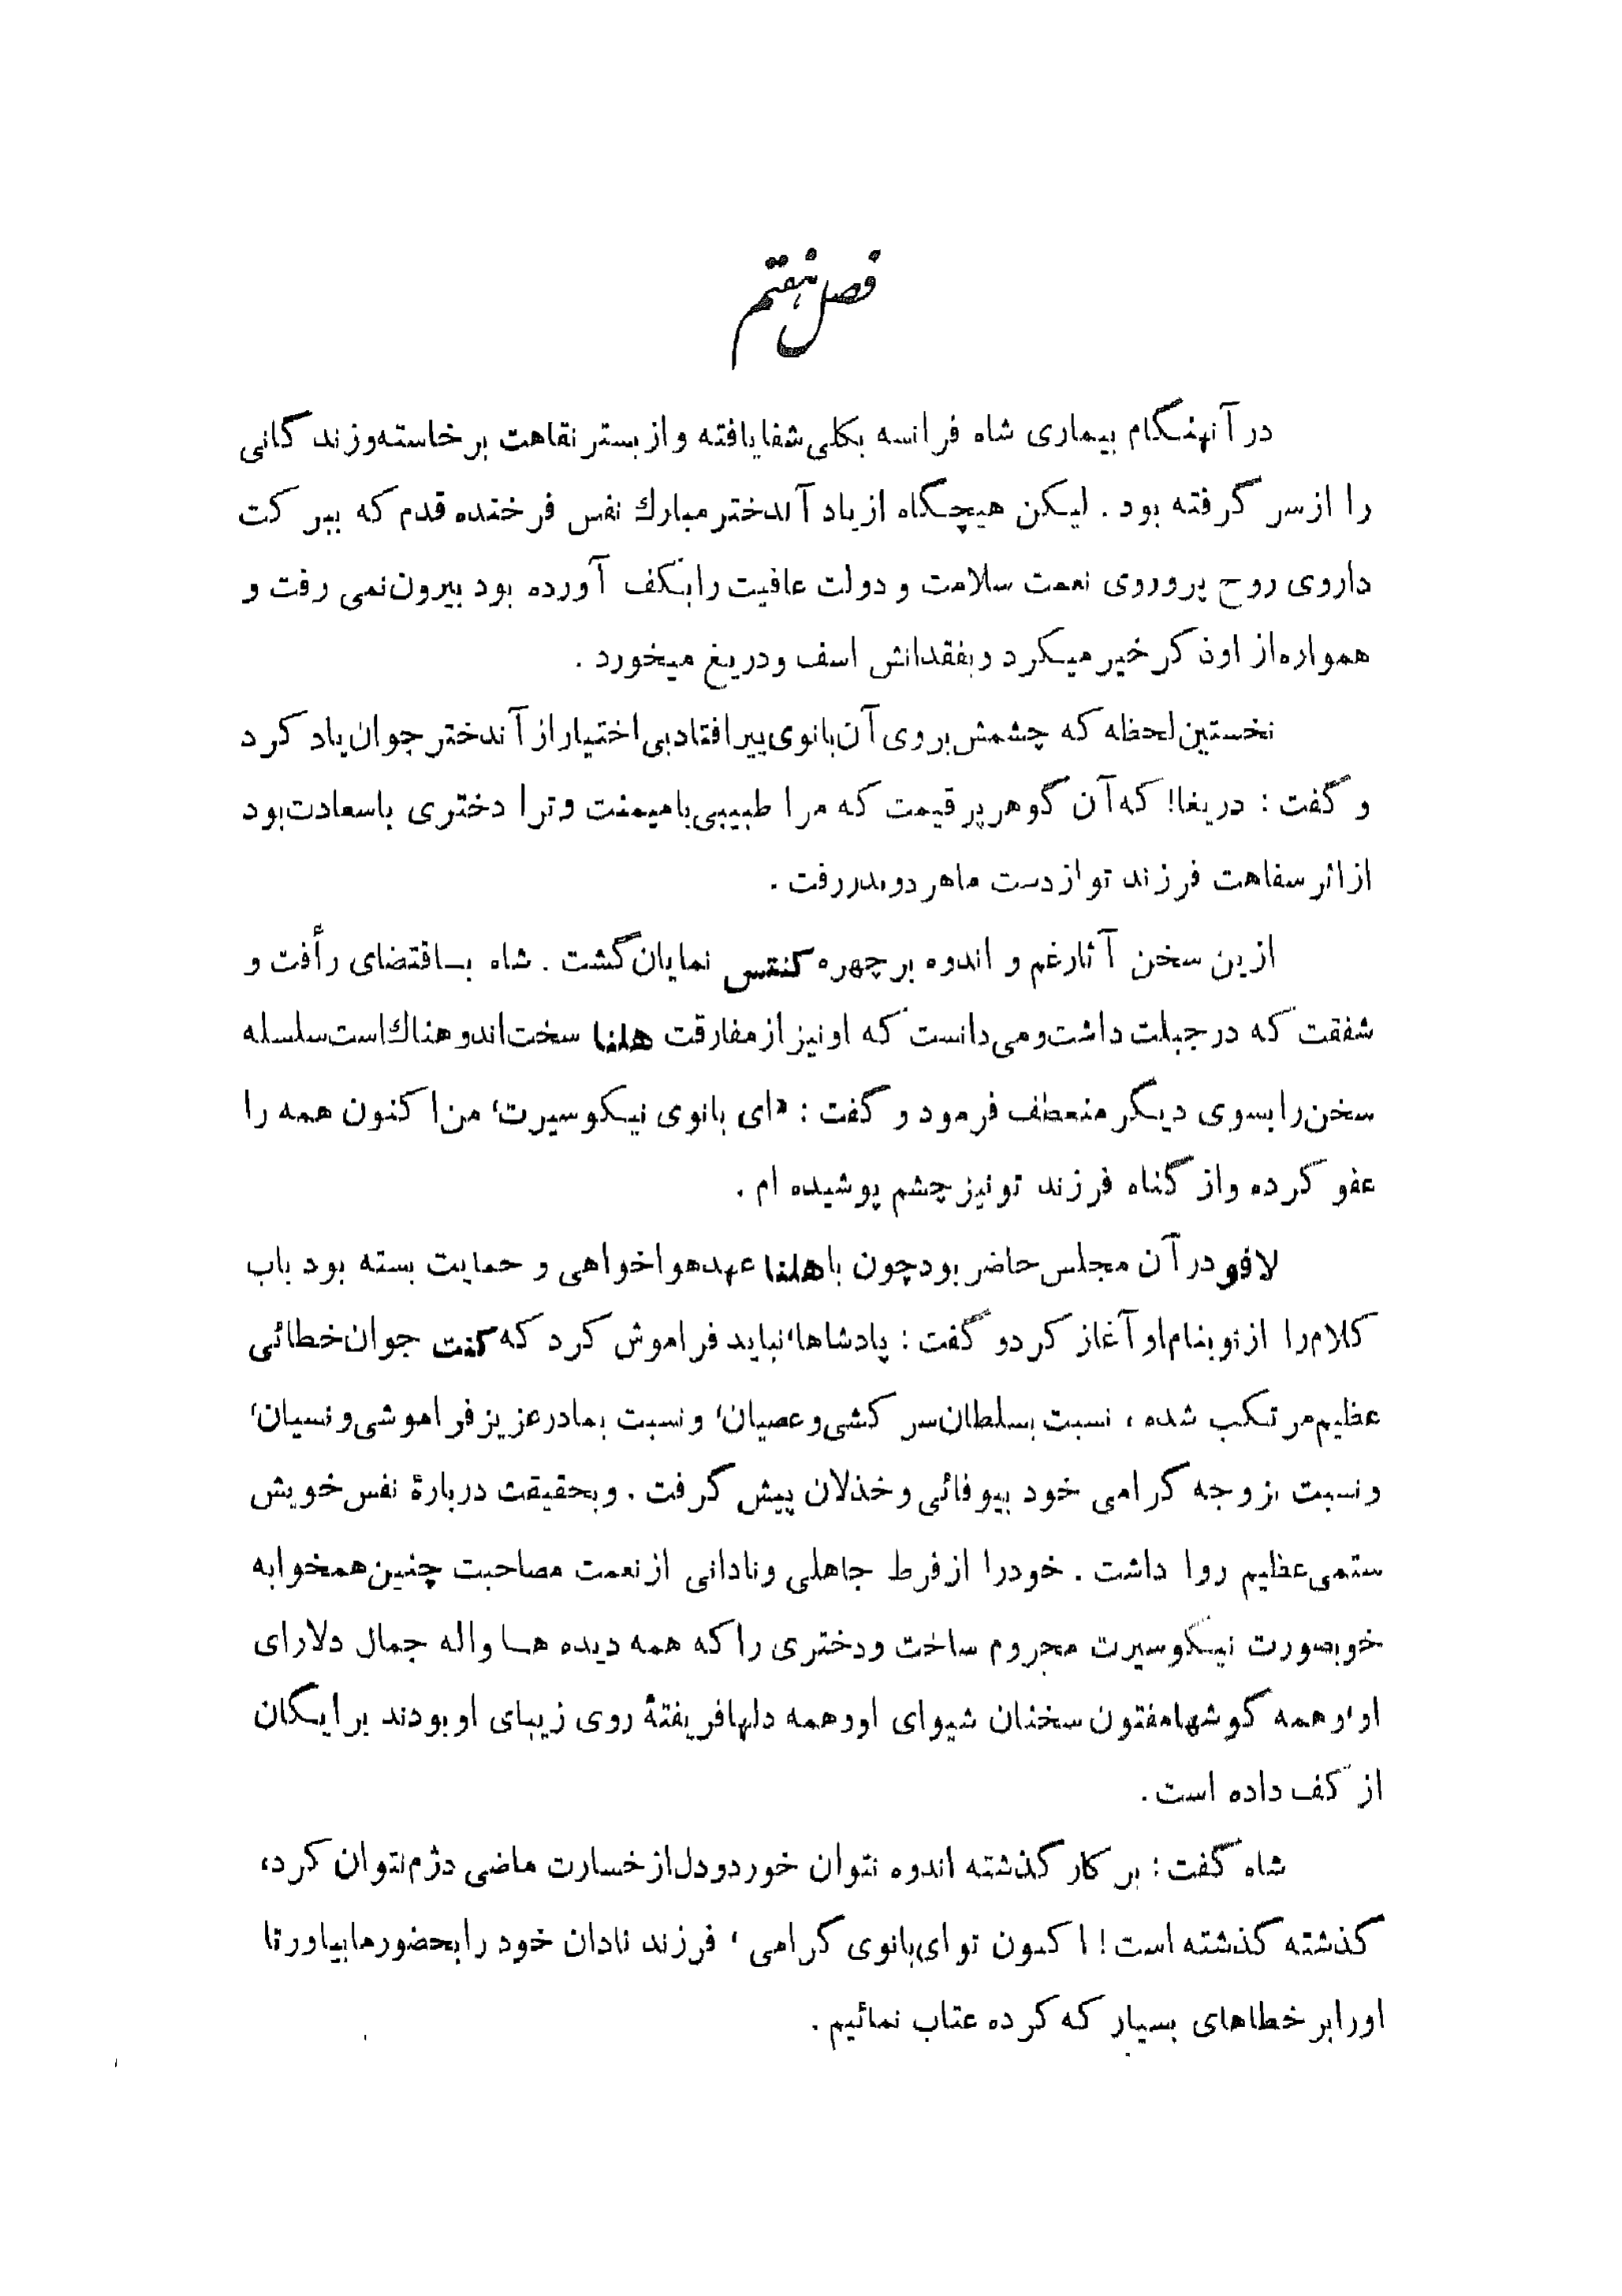 فصل هفتم
در آنهنگام بیماری شاه فرانسه بکلی شفا یافته و از بستر نقاهت برخاسته وزندگانی
را از سر گرفته بود . لیکن هیچگاه از یاد آندختر مبارك نفس فرخنده قدم که ببرکت
داروی روح پروروی نعمت سلامت و دولت عافیت را بکف آورده بود بیرون نمی رفت و
همواره از او ذکر خیر میکرد و بفقدانش اسف و دریغ میخورد .
نخستین لحظه که چشمش بروی آن بانوی پیر افتاد بی اختیار از آندختر جوان یاد کرد
و گفت : دریغا! که آن گوهر پر قیمت که مرا طبیبی با میمنت و ترا دختری باسعادت بود
از اثر سفاهت فرزند تو از دست ما هر دو بدر رفت .
ازین سخن آثار غم و اندوه بر چهره کنتس نمایان گشت . شاه باقتضای رأفت و
شفقت که در جبلت داشت و می دانست که او نیز از مفارقت هلنا سخت اندوهناك است سلسله
سخن را بسوی دیگر منعطف فرمود و گفت : «ای بانوی نیکوسیرت، من اکنون همه را
عفو کرده و از گناه فرزند تو نیز چشم پوشیده ام .
لافو در آن مجلس حاضر بود چون با هلنا عهد هواخواهی و حمایت بسته بود باب
کلام را از نو بنام او آغاز کرد و گفت : پادشاها، نباید فراموش کرد که کنت جوان خطائی
عظیم مرتکب شده ، نسبت بسلطان سر کشی و عصیان، و نسبت بمادر عزیز فراموشی و نسیان،
و نسبت بزوجه گرامی خود بیوفائی و خذلان پیش گرفت . و بحقیقت دربارۀ نفس خویش
ستمی عظیم روا داشت . خود را از فرط جاهلی و نادانی از نعمت مصاحبت چنین همخوابه
خوبصورت نیکوسیرت محروم ساخت و دختری را که همه دیده ها واله جمال دلارای
او، و همه گوشها مفتون سخنان شیوای او و همه دلها فریفتۀ روی زیبای او بودند برایگان
از کف داده است .
شاه گفت : بر کار گذشته اندوه نتوان خورد و دل از خسارت ماضی دژم نتوان کرد،
گذشته گذشته است ! اکنون تو ای بانوی گرامی ، فرزند نادان خود را بحضور ما بیاور تا
او را بر خطاهای بسیار که کرده عتاب نمائیم .